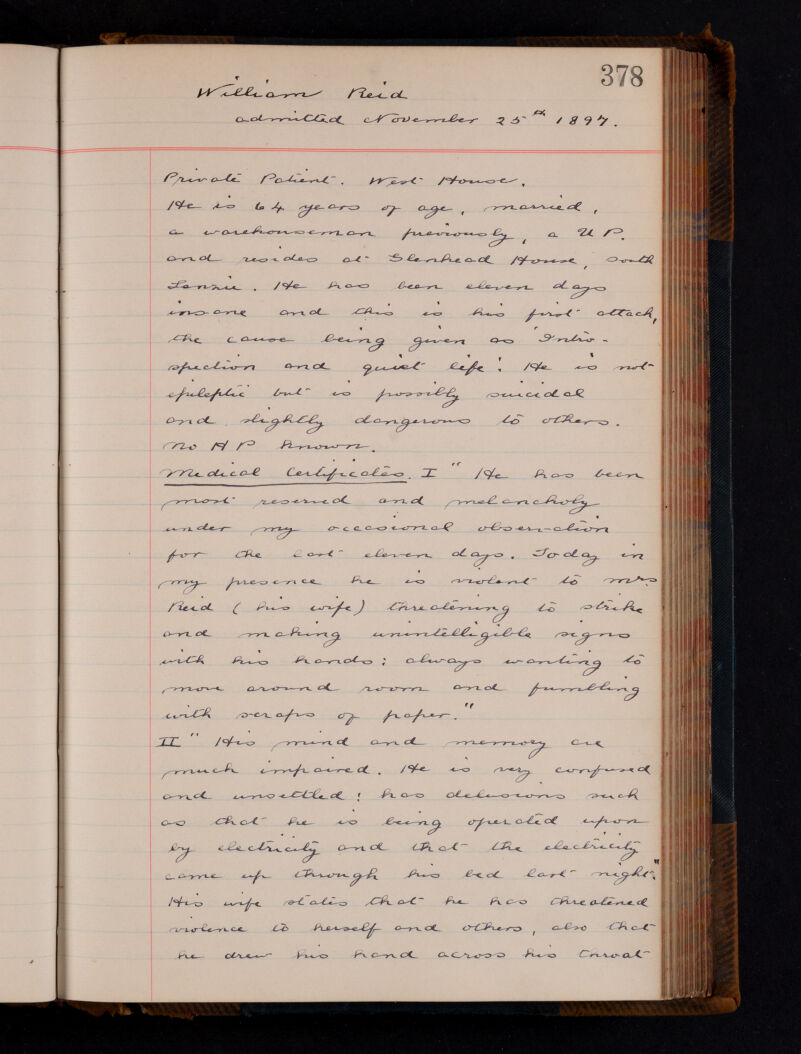 378
William Reid
admitted November 25th 1897.
Private Patient. West House.
He is 64 years of age, married,
a warehouseman previously, a U P.
and resides at Glenhead House, South
Lenzie. He has been eleven days
insane and this is his first attack,
the cause being given as 'Intro-
spection and quiet life'. He is not
epileptic but is possibly suicidal
and slightly dangerous to others.
No H P known.
Medical Certificates. I "He has been
most reserved and melancholy
under my occasional observation
for the last eleven days. Today in
my presence he is violent to Mrs
Reid (his wife) threatening to strike
and making unintelligible signs
with his hands; always wanting to
move around room and fumbling
with scraps of paper."
II "His mind and memory are
much impaired. He is very confused
and unsettled; has delusions such
as that he is being operated upon
by electricity and that the electricity
came up through his bed last night."
His wife states that he has threatened
violence to herself and others, also that
he drew his hand across his throat